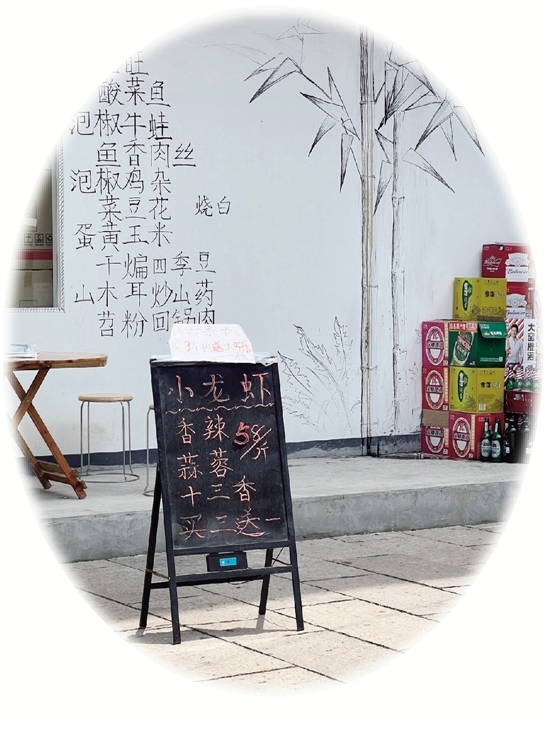 旺
酸菜鱼
泡椒牛蛙
鱼香肉丝
泡椒鸡杂
菜豆花
烧白
蛋黄玉米
干煸四季豆
山木耳炒山药
苕粉回锅肉
小龙虾
香辣 58/斤
蒜蓉
十三香
买三送一
Budweiser